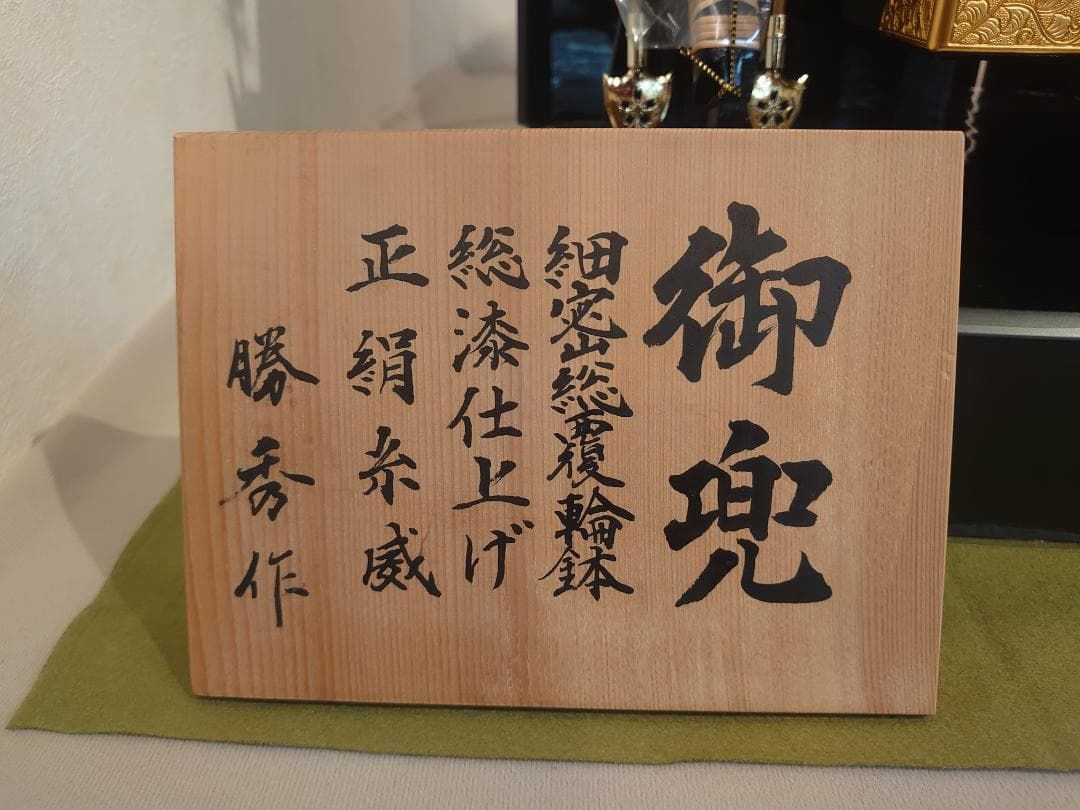 御兜
細密総覆輪鉢
総漆仕上げ
正絹糸威
勝秀作